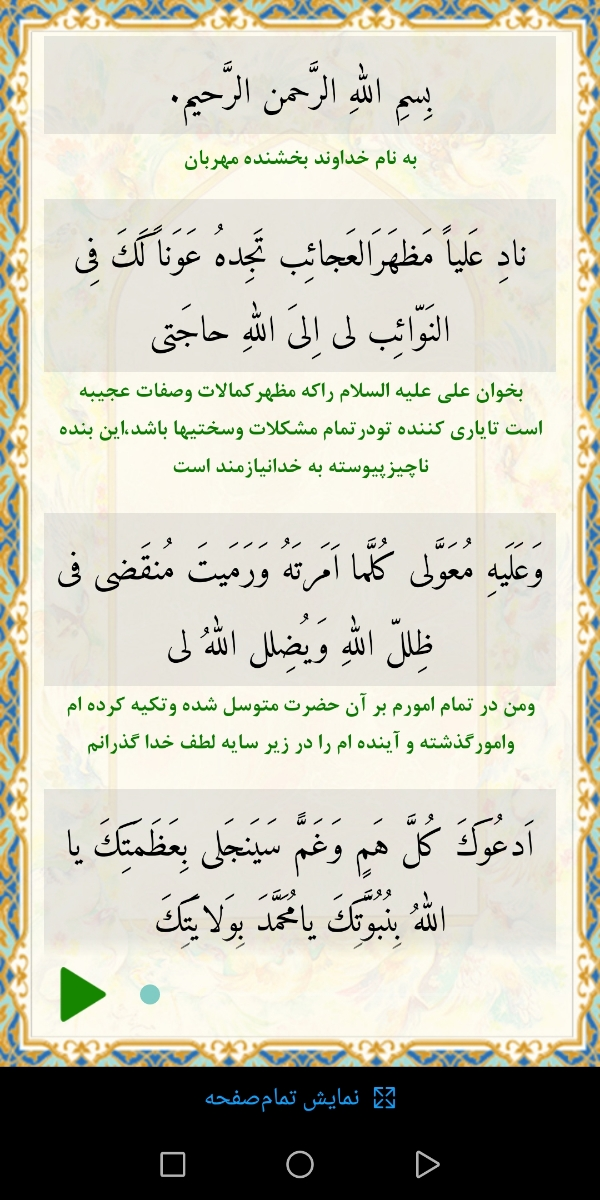 بِسمِ اللهِ الرَّحمن الرَّحیم.
به نام خداوند بخشنده مهربان
نادِ عَلیاً مَظهَرَالعَجائِب تَجِدهُ عَوَناً لَکَ فِی
النَوّائِب لی اِلیَ اللهِ حاجَتی
بخوان علی علیه السلام راکه مظهرکمالات وصفات عجیبه
است تایاری کننده تودرتمام مشکلات وسختیها باشد،این بنده
ناچیزپیوسته به خدانیازمند است
وَعَلَیهِ مُعَوَّلی کُلَّما اَمَرتَهُ وَرَمَیتَ مُنقَضی فی
ظِللّ اللهِ وَیُضِلل اللهُ لی
ومن در تمام امورم بر آن حضرت متوسل شده وتکیه کرده ام
وامورگذشته و آینده ام را در زیر سایه لطف خدا گذرانم
اَدعُوکَ کُلَّ هَمٍ وَغَمًّ سَیَنجَلی بِعَظَمَتِکَ یا
اللهُ بِنُبُوَّتِکَ یامُحَمَّدَ بِوَلایَتِکَ
نمایش تمام‌صفحه